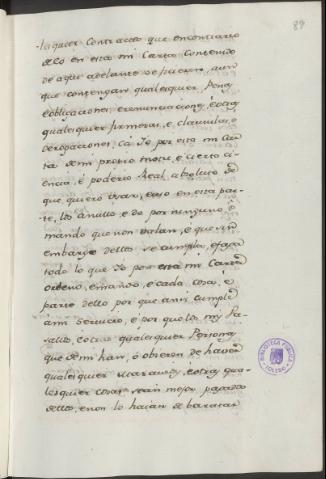 89
lesquier Contractos que en contrario
dello en esta mi Carta Contenido
de aqui adelante se fueren, aun
que contengan qualesquier Penas
e obligaciones, e renunciaciones, e otras
qualesquier firmezas, e clausulas, e
derogaciones, Ca Yo por esta mi Car
ta de mi proprio motu, e cierta ci-
encia, e poderio Real absoluto de
que quiero Usar, e uso en esta par-
te, los anullo, e do por ningunos, e
mando que non valan, e que sin
embargo dellos se cumpla, e faga
todo lo que Yo por esta mi Carta
ordeno, e mando, e cada cosa, e
parte dello por que ansi cumple
a mi Servicio, e por que los mis Va-
sallos, e otras qualesquier Personas
que de mi han, ò obieron de haver
qualesquier Maravedis, e otras qua-
lesquier cosas sean mejor pagados
dellos, e non lo haian de baratar
BIBLIOTECA PUBLICA
TOLEDO